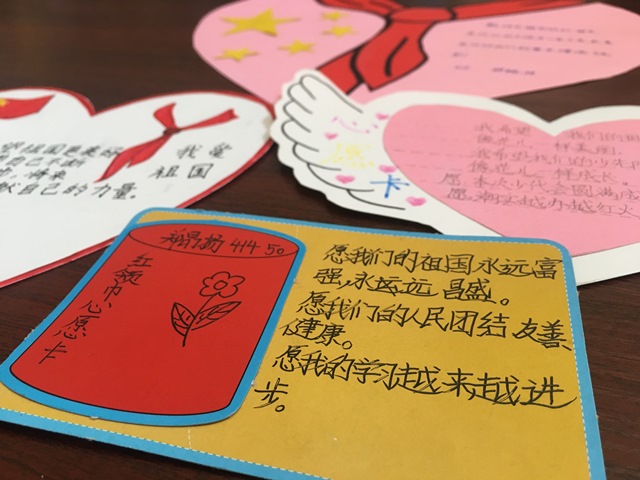 我爱
祖国
祖国更美好
自己不断
步,将来
献自己的力量。
心
愿
卡
我希望 我们的
像花儿一样美丽,
我希望我们的少先
像花儿一样成长。
愿本次少代会圆满成
愿潮实越办越红火
昂扬 414 50
红领巾心愿卡
愿我们的祖国永远富
强,永远远昌盛。
愿我们的人民团结友善、
健康。
愿我的学习越来越进
步。